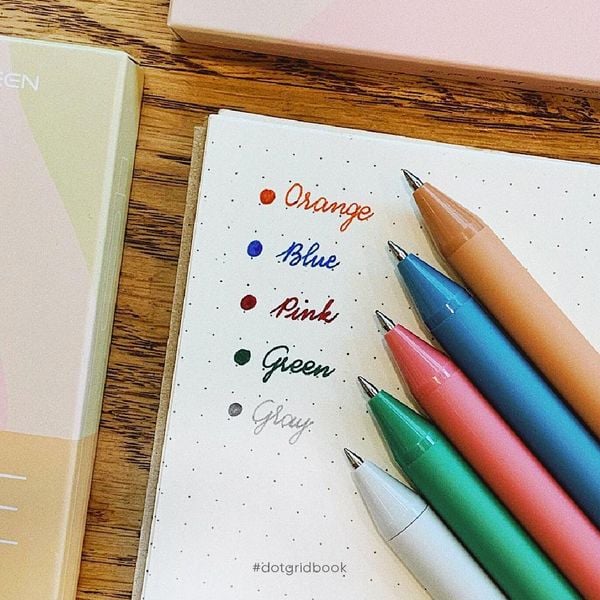 Orange
Blue
Pink
Green
Gray
#dotgridbook